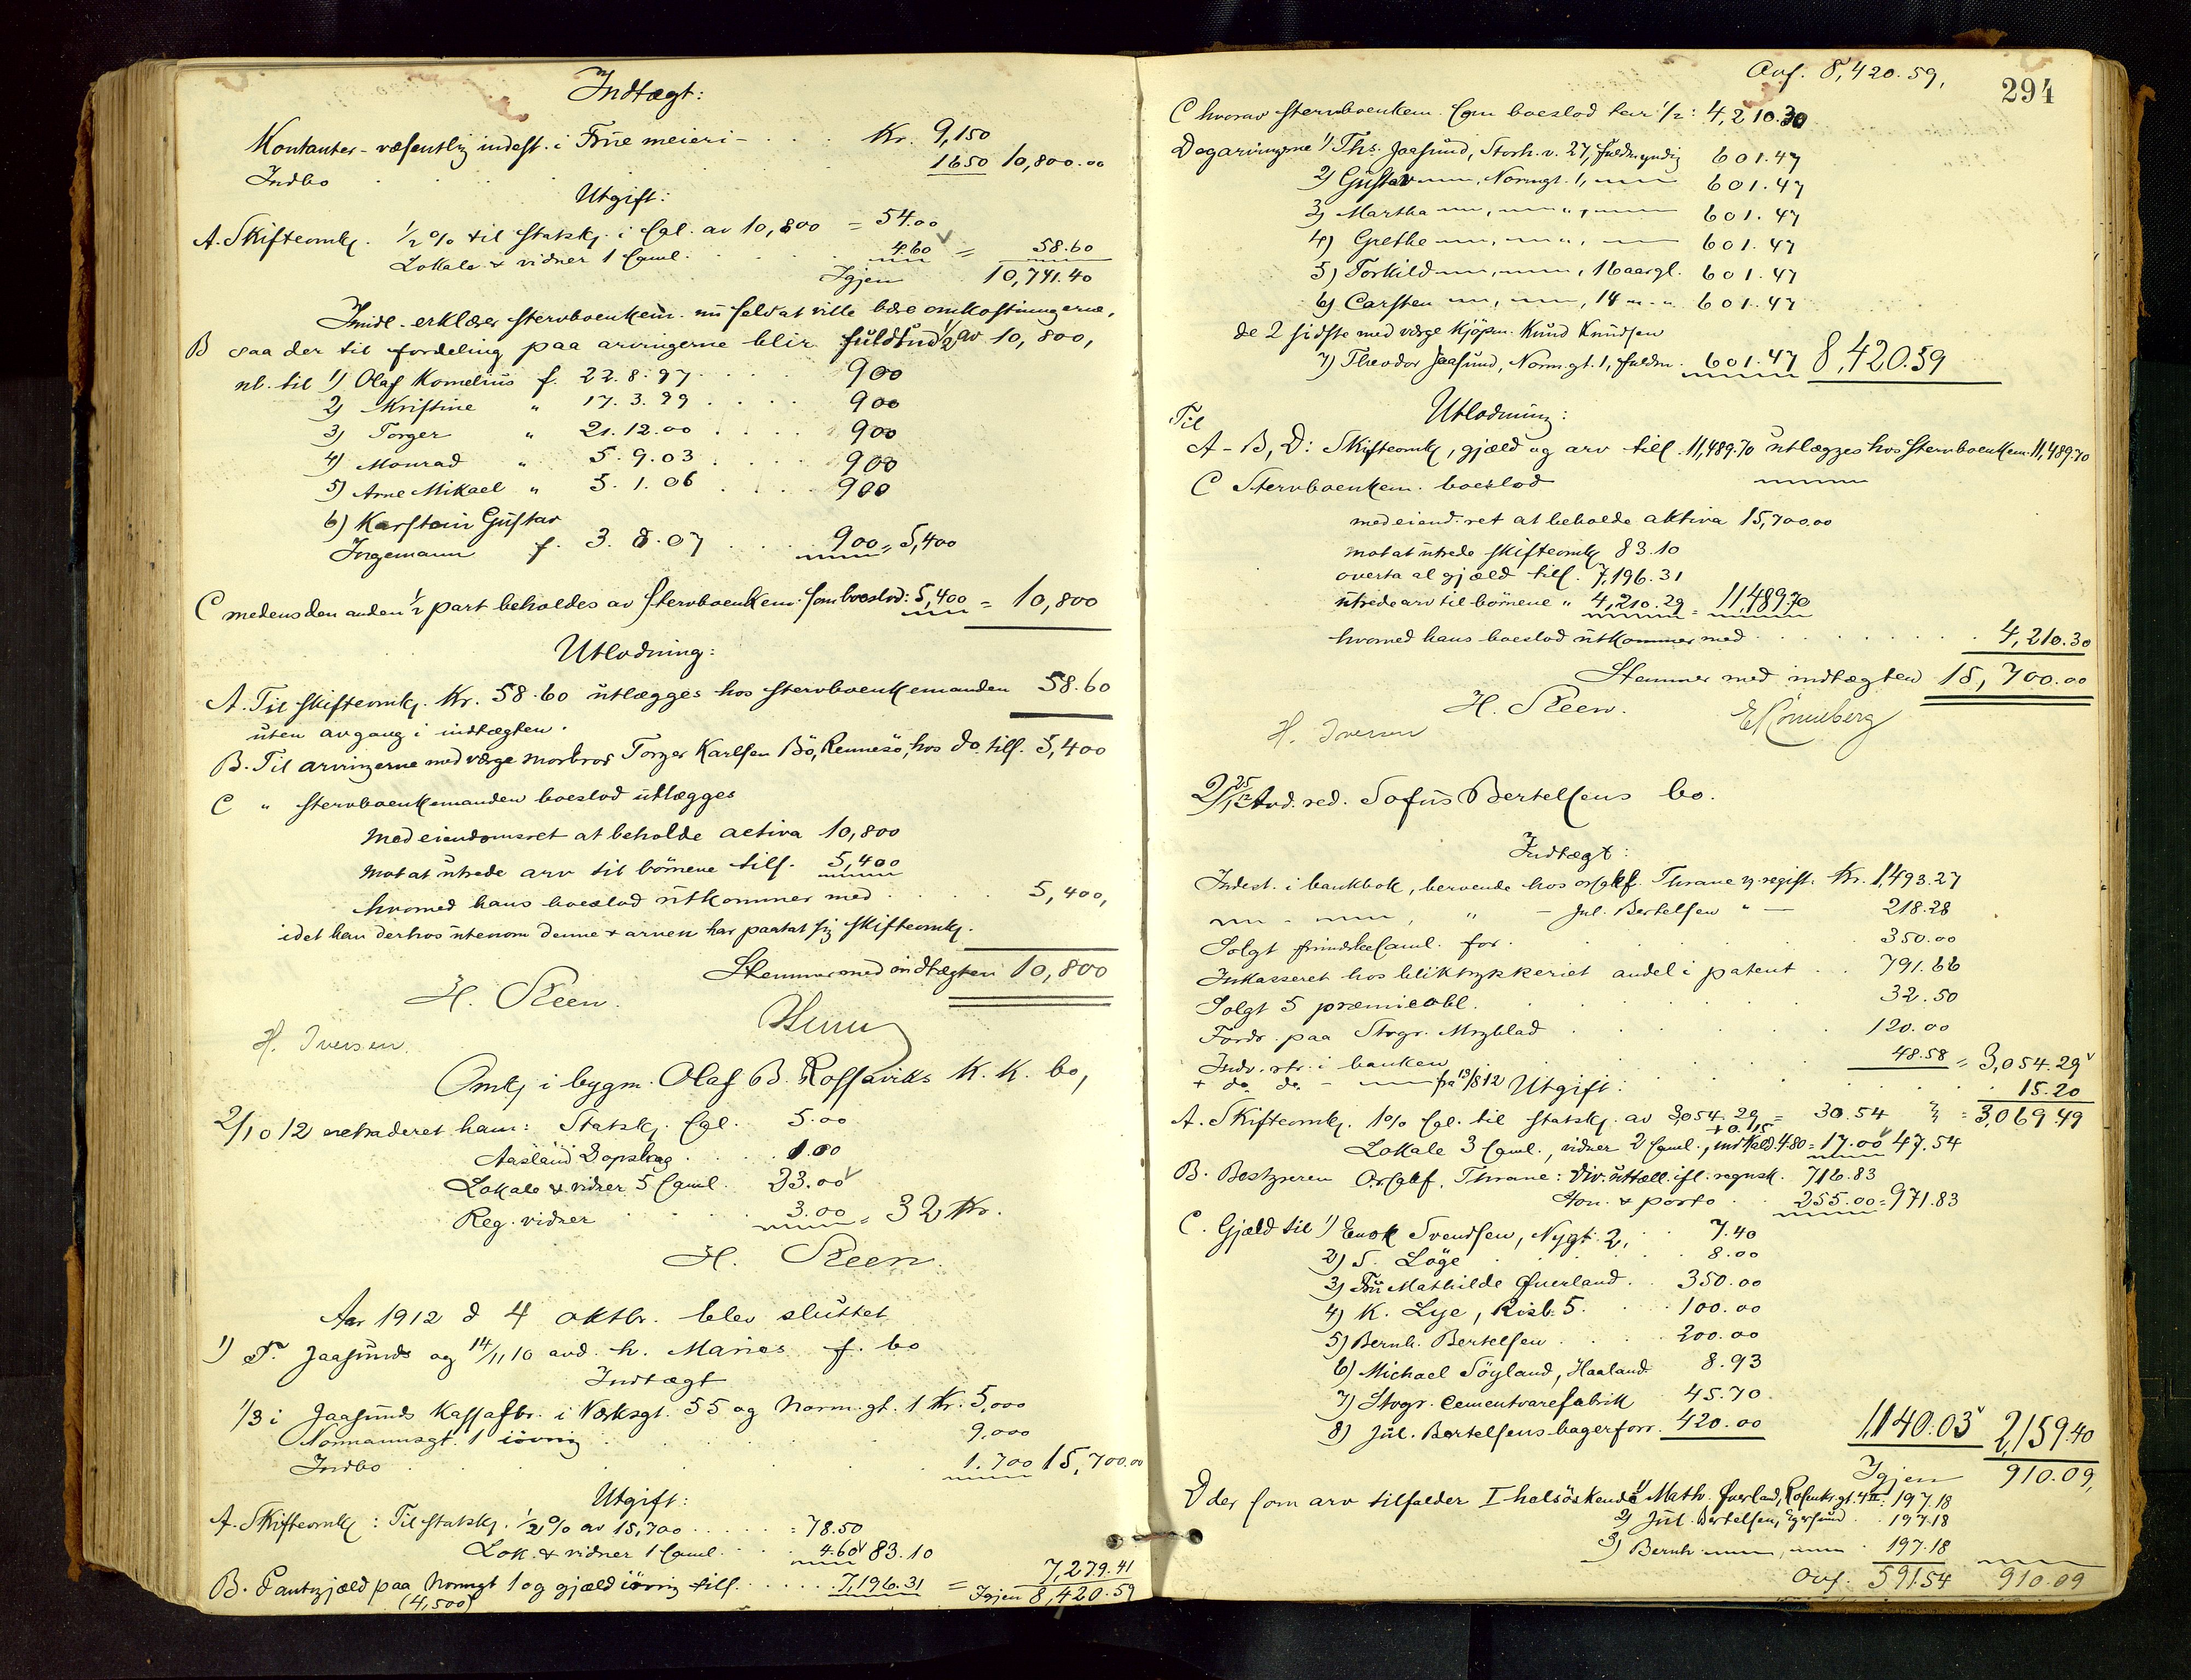 Indtægt:
Kontanter - væsentlig indest. i Frue meieri - . . . . Kr. 9,150
Indbo 1650 10,800.00
Utgift:
A. Skifteomk. 1/2 % til statsk. i fgl. av 10,800 = 54.00
Lokale & vidner 1 saml. . . . . 4.60 = 58.60
Igjen 10,741.40
Imidl. erklærer stervboenkem. nu selv at ville bære omkostningerne,
B saa der til fordeling paa arvingerne blir fuldt ud 1/2 av 10,800,
nl. til 1) Olaf Kornelius f. 22.8.97 . . . . 900
2) Kristine " 17.3.99 . . . . 900
3) Torger " 21.12.00 . . . . 900
4) Monrad " 5.9.03 . . . . 900
5) Arne Mikael " 5.1.06 . . . . 900
6) Karstein Gustav
Ingemann f. 3.8.07 . . . . 900 = 5,400
C medens den anden 1/2 part beholdes av stervboenkem. som boeslod: 5,400 = 10,800
Utlodning:
A. Til skifteomk. Kr. 58.60 utlægges hos stervboenkemanden 58.60
uten avgang i indtægten.
B. Til arvingerne med værge morbror Torger Karlsen Bö, Rennesö, hos do. tils. 5,400
C " stervboenkemanden boeslod utlægges
med eiendomsret at beholde activa 10,800
mot at utrede arv til börnene tils. 5,400
hvormed hans boeslod utkommer med . . . . 5,400,
idet han derhos utenom denne & arven har paatat sig skifteomk.
Stemmer med indtægten 10,800
H. Steen.
H. Iversen
Omk. i bygm. Olaf B. Rossaviks K.K. bo,
2/10 12 extraderet ham: Statsk. fgl. 5.00
Aasland Dopslag . . . . 1.00
Lokale & vidner 5 saml. 23.00
Reg. vidner . . . . 3.00 = 32 Kr.
H. Steen.
Aar 1912 d 4 oktbr. blev sluttet
1) T. Jaasunds og 14/11 10 avd. h. Maries f. bo
Indtægt
1/3 i Jaasunds Kassafbr. i Verksgt. 55 og Norm.gt. 1 Kr. 5,000
Normannsgt. 1 iövrig . . . . 9,000
Indbo . . . . 1.700 15,700.00
Utgift:
A. Skifteomk.: Til statsk. 1/2 % av 15,700 . . . . = 78.50
Lok. & vidner 1 saml. . . . . 4.60 83.10
B. Pantegjæld paa Normgt 1 og gjæld iövrig tils. . . . . 7,196.31 = 7,279.41
(4,500) Igjen 8,420.59
294
Ovf. 8,420.59,
C hvorav stervboenkem. som boeslod tar 1/2: 4,210.30
D og arvingerne 1) Ths. Jaasund, Storh.v. 27, fuldmyndig 601.47
2) Gustav —, Normgt. 1, — 601.47
3) Martha —, — ", — 601.47
4) Grethe —, — ", — 601.47
5) Torkild —, —, 16 aar gl. 601.47
6) Carsten —, —, 14 — " 601.47
de 2 sidste med værge kjöpm. Knud Knudsen
7) Theodor Jaasund, Norm.gt. 1, fuldm. 601.47 8,420.59
Utlodning:
Til
A - B, D: Skifteomk, gjæld og arv tils. 11,489.70 utlægges hos stervboenkem. 11,489.70
C Stervboenkem. boeslod
med eiend.ret at beholde aktiva 15,700.00
mot at utrede skifteomk 83.10
overta al gjæld tils. 7,196.31
utrede arv til börnene " 4,210.29 = 11,489.70
hvormed hans boeslod utkommer med . . . . 4,210.30
Stemmer med indtægten 15,700.00
H. Steen.
H. Iversen
2) 25/1 12 avd. red. Sofus Bertelsens bo.
Indtægt:
Indest. i bankbok, beroende hos orsakf. Thrane & regist. Kr. 1,493.27
— - —, " - Jul. Bertelsen " — 218.28
Solgt frimerkesaml. for . . . . 350.00
Inkasseret hos bliktrykkeriet andel i patent . . 791.66
Solgt 5 præmieobl. . . . . 32.50
Fordr. paa Stvgr. Mrgblad . . . . 120.00
Indv. rtr. i banken . . . . 48.58 = 3,054.29
+ do. do. - — fra 13/8 12 . . . . 15.20
Utgift: 3,069.49
A. Skifteomk. 1% fgl. til statsk. av 3,054.29 = 30.54
+ 0.15
Lokale 3 saml., vidner 2 saml., indkald. 4.80 = 17.00 47.54
B. Bestyreren Orsakf. Thrane: Div. uttæll. ifl. regnsk. 716.83
Hon. & porto . . 255.00 = 971.83
C. Gjæld til 1) Enok Svendsen, Nygt. 2, . . 7.40
2) S. Löge . . . . 8.00
3) Fru Mathilde Qverland . . 350.00
4) K. Lye, Risb. 5. . . 100.00
5) Bernh. Bertelsen . . . . 200.00
6) Michael Söyland, Haaland 8.93
7) Stvgr. Cementvarefabrik 45.70
8) Jul. Bertelsens bagerforr. 420.00 1,140.03 2,159.40
Igjen 910.09,
D der som arv tilfalder I helsöskende 1) Math. Qverland, Rosenkr.gt. 4 II: 197.18
2) Jul. Bertelsen, Egersund . . 197.18
3) Bernh. —, — . 197.18
Ovf. 591.54 910.09